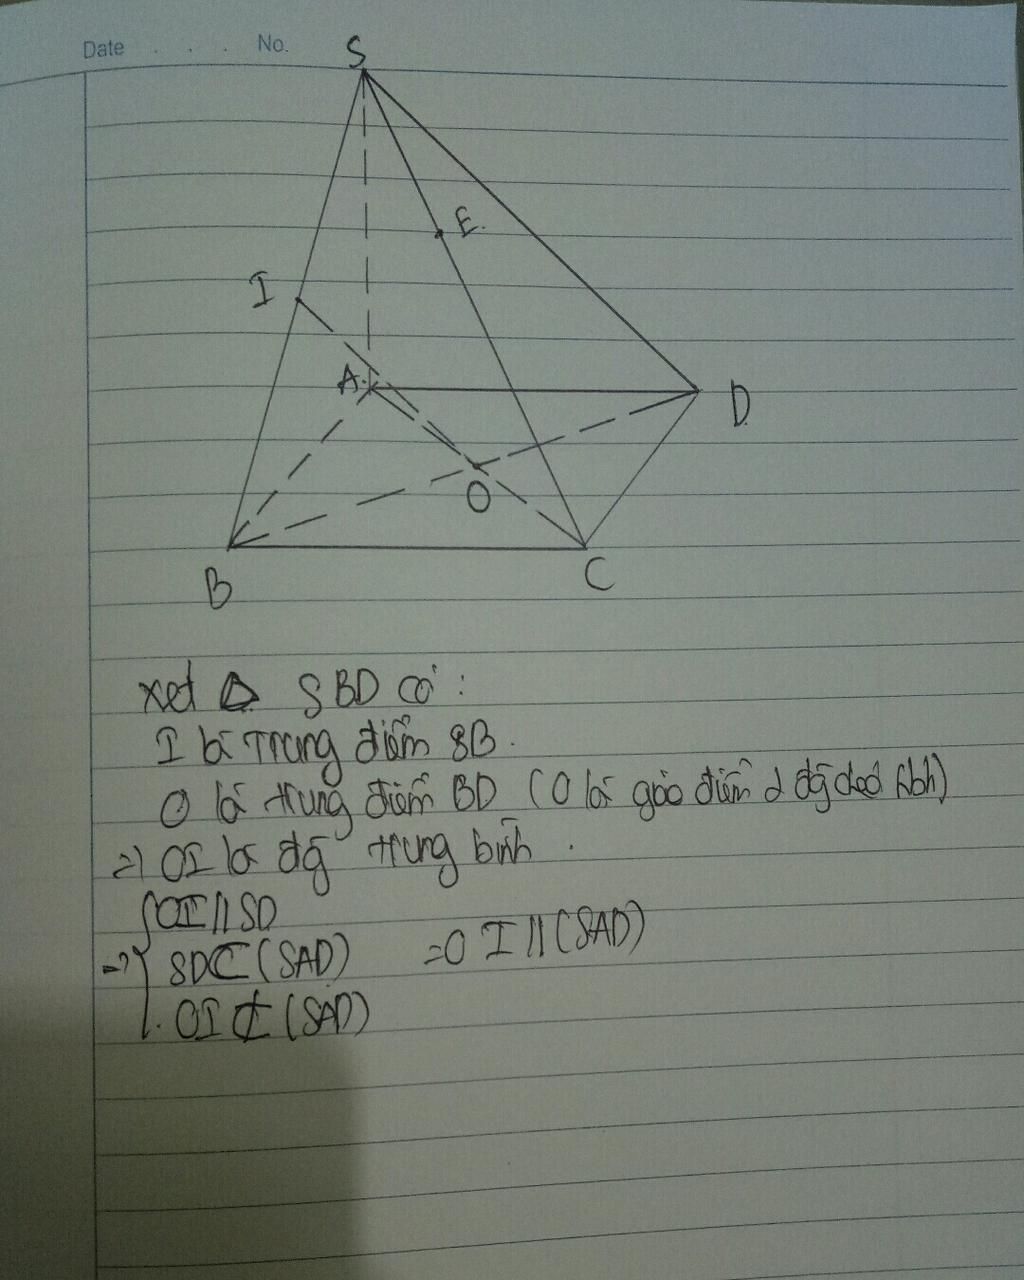 Date . . . No.
S
E
I
A
D
O
B
C
xét Δ SBD có :
I là trung điểm SB .
O là trung điểm BD (O là giao điểm 2 đg chéo hbh)
=> OI là đg trung bình .
OI // SD
=> SD ⊂ (SAD) => OI // (SAD)
OI ⊄ (SAD)